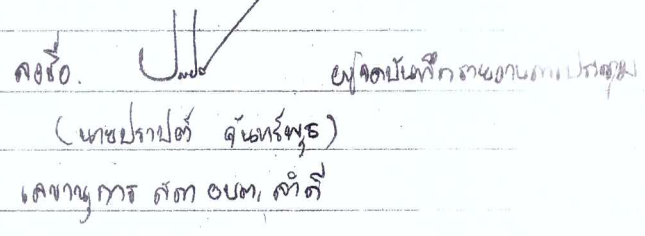 ลงชื่อ. ผู้จดบันทึกรายงานการประชุม
(นายปราปต์ จันทร์พุธ)
เลขานุการ สภา อบต. ลำดี